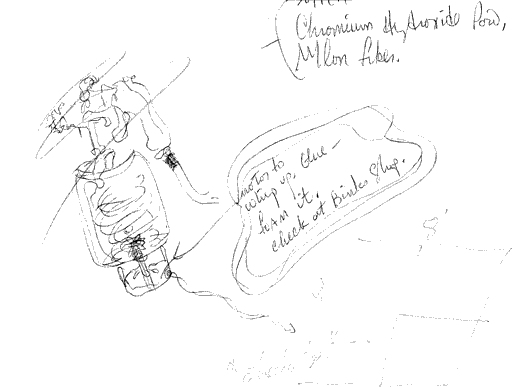 Chromium Hydroxide Pow,
Nylon fiber.
motor to
whip up. glue -
foam it.
check at Binks Shop.
8'